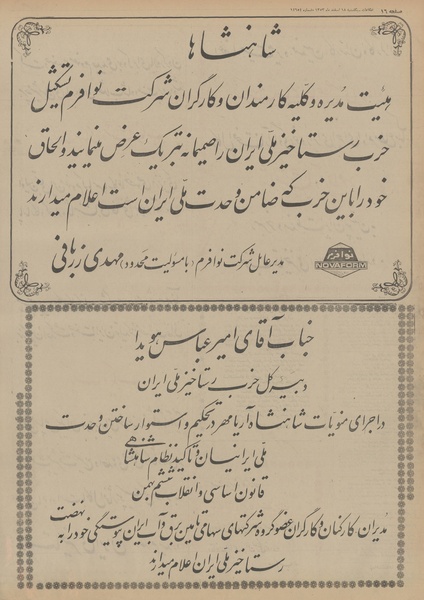 صفحه ۱۶
شاهنشاها
هیئت مدیره و کلیه کارمندان و کارگران شرکت نوافرم تشکیل
حزب رستاخیز ملی ایران را صمیمانه تبریک عرض مینمایند و الحاق
خود را باین حزب که ضامن وحدت ملی ایران است اعلام میدارند
نوافرم
NOVAFORM
مدیر عامل شرکت نوافرم (با مسئولیت محدود) مهدی زربافی
جناب آقای امیرعباس هویدا
دبیر کل حزب رستاخیز ملی ایران
در اجرای منویات شاهنشاه آریامهر در تحکیم و استوار ساختن وحدت
ملی ایرانیان و تاکید نظام شاهنشاهی
قانون اساسی و انقلاب ششم بهمن
مدیران کارکنان و کارگران عضو گروه شرکتهای سهامی تامین برق و آب ایران پیوستگی خود را به نهضت
رستاخیز ملی ایران اعلام میدارند